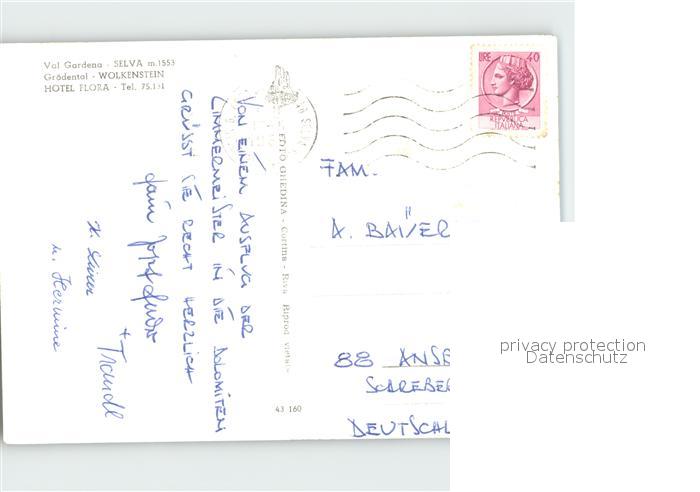 Val Gardena - SELVA m.1553
Grödental - WOLKENSTEIN
HOTEL FLORA - Tel. 75.131
LIRE 40
REPVBBLICA
ITALIANA
VON EINEM AUSFLUG DER
ZIMMERMEISTER IN DIE DOLOMITEN
GRÜSST SIE RECHT HERZLICH
+ Traudl
u. Hermine
FOTO GHEDINA - Cortina - Riva Riprod. vietata
43 160
FAM.
A. BAIER
88 ANSB
DEUTSCHL
privacy protection
Datenschutz